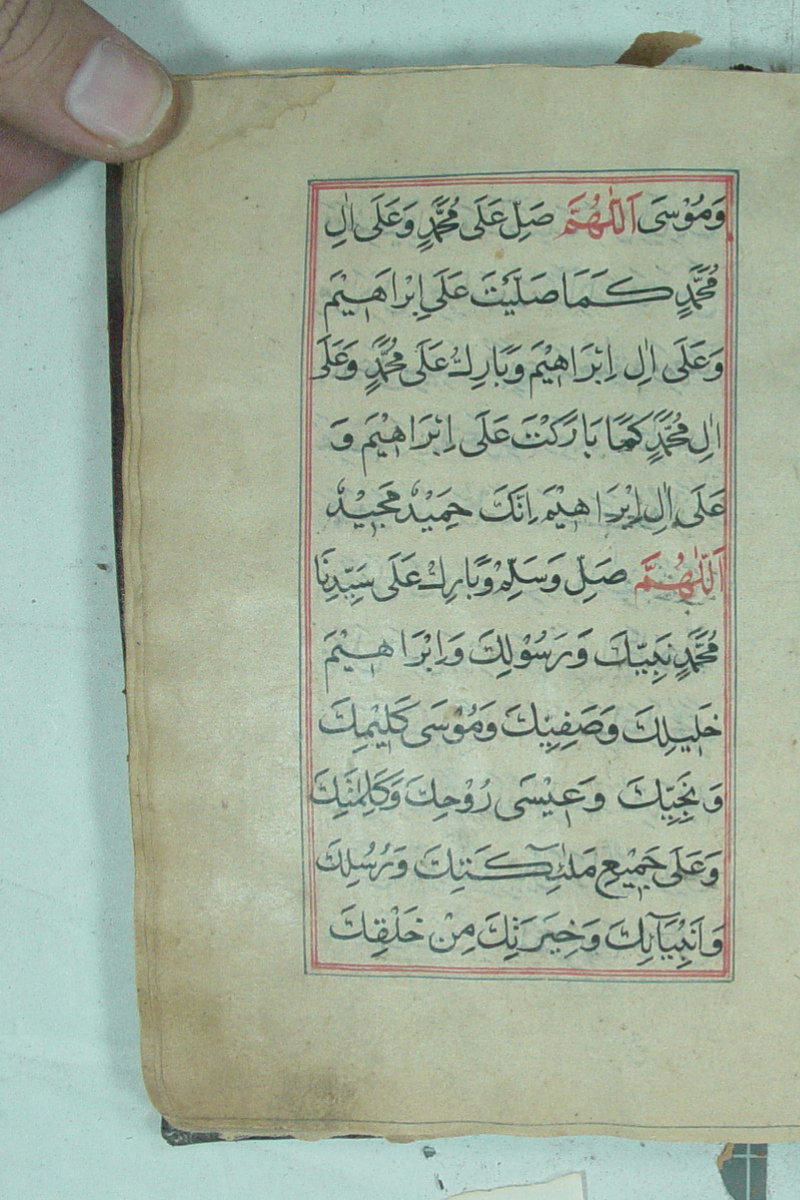 وَمُوْسَى اَللّٰهُمَّ صَلِّ عَلَى مُحَمَّدٍ وَعَلَى اٰلِ
مُحَمَّدٍ كَمَا صَلَّيْتَ عَلَى اِبْرَاهِيْمَ
وَعَلَى اٰلِ اِبْرَاهِيْمَ وَبَارِكْ عَلَى مُحَمَّدٍ وَعَلَى
اٰلِ مُحَمَّدٍ كَمَا بَارَكْتَ عَلَى اِبْرَاهِيْمَ وَ
عَلَى اٰلِ اِبْرَاهِيْمَ اِنَّكَ حَمِيْدٌ مَجِيْدٌ
اَللّٰهُمَّ صَلِّ وَسَلِّمْ وَبَارِكْ عَلَى سَيِّدِنَا
مُحَمَّدٍ نَبِيِّكَ وَرَسُوْلِكَ وَاِبْرَاهِيْمَ
خَلِيْلِكَ وَصَفِيِّكَ وَمُوْسَى كَلِيْمِكَ
وَنَجِيِّكَ وَعِيْسَى رُوْحِكَ وَكَلِمَتِكَ
وَعَلَى جَمِيْعِ مَلٰٓئِكَتِكَ وَرُسُلِكَ
وَاَنْبِيَآئِكَ وَخِيَرَتِكَ مِنْ خَلْقِكَ